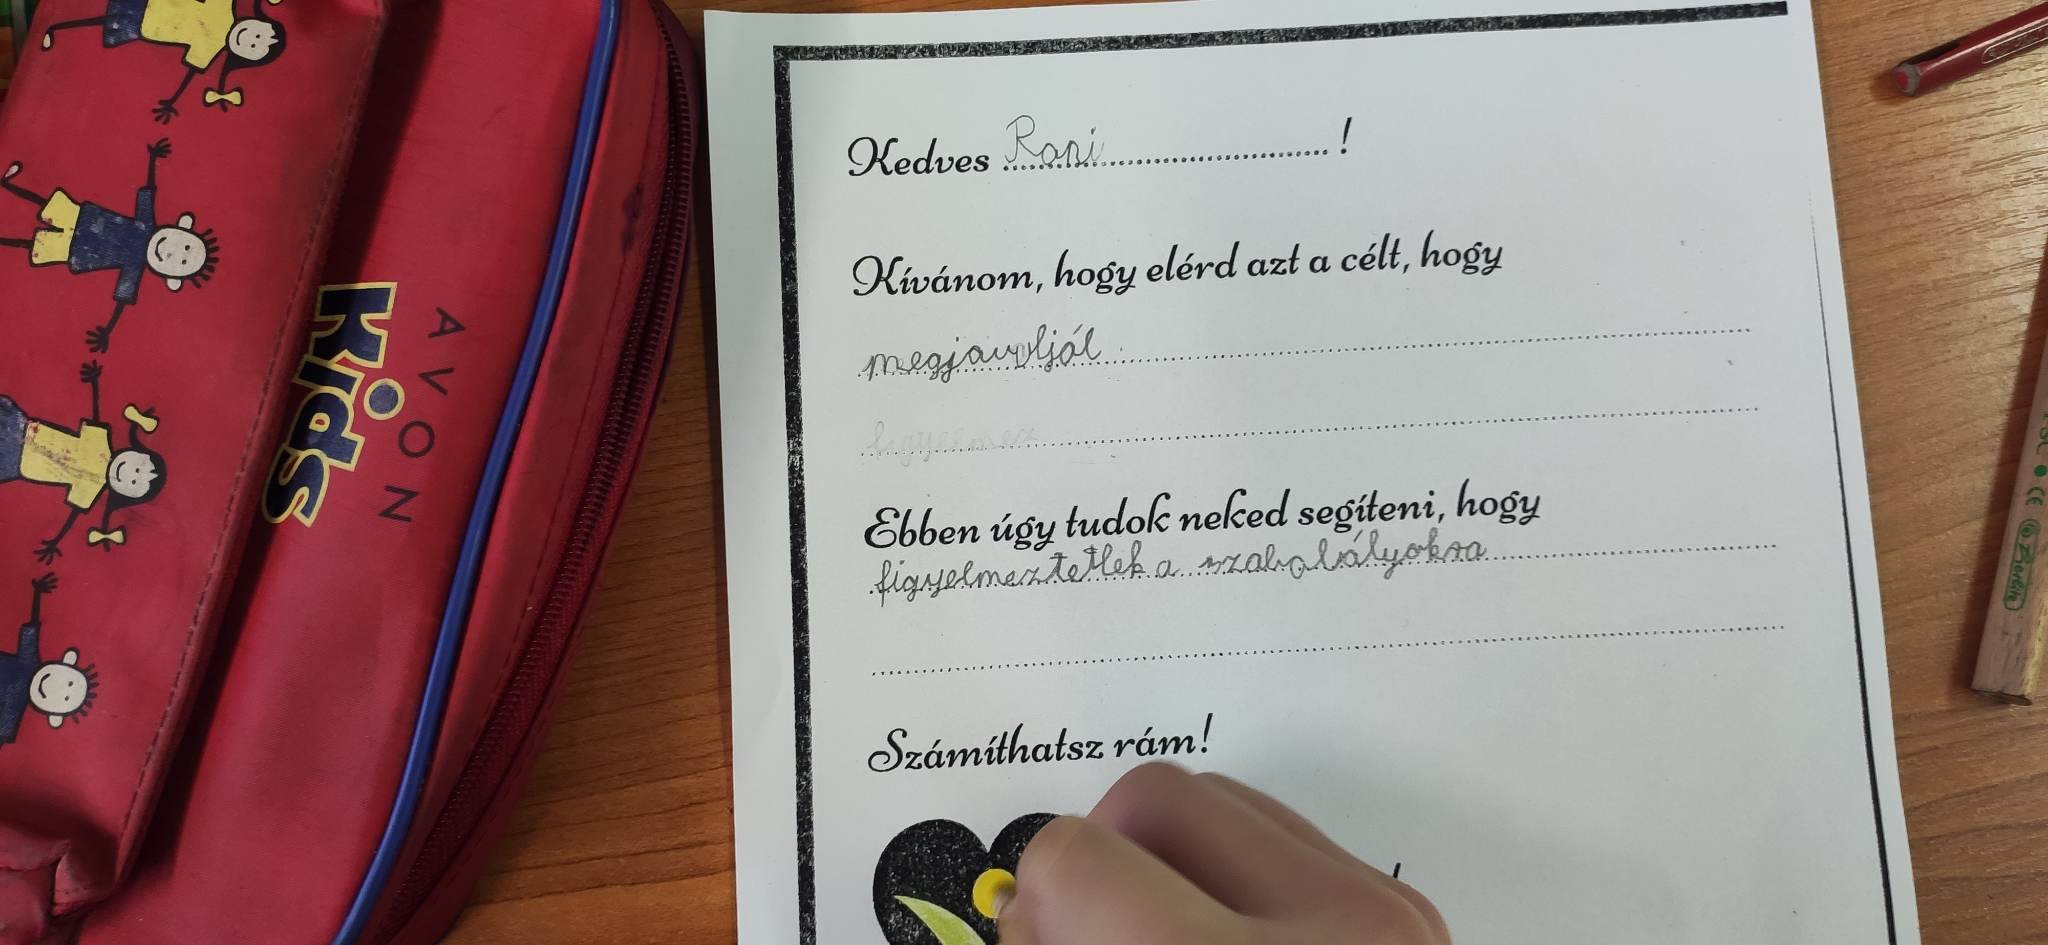 AVON
Kids
Kedves Rapi !
Kívánom, hogy elérd azt a célt, hogy
megjavuljál
figyelmez
Ebben úgy tudok neked segíteni, hogy
figyelmeztetlek a szabalályokra
Számíthatsz rám!